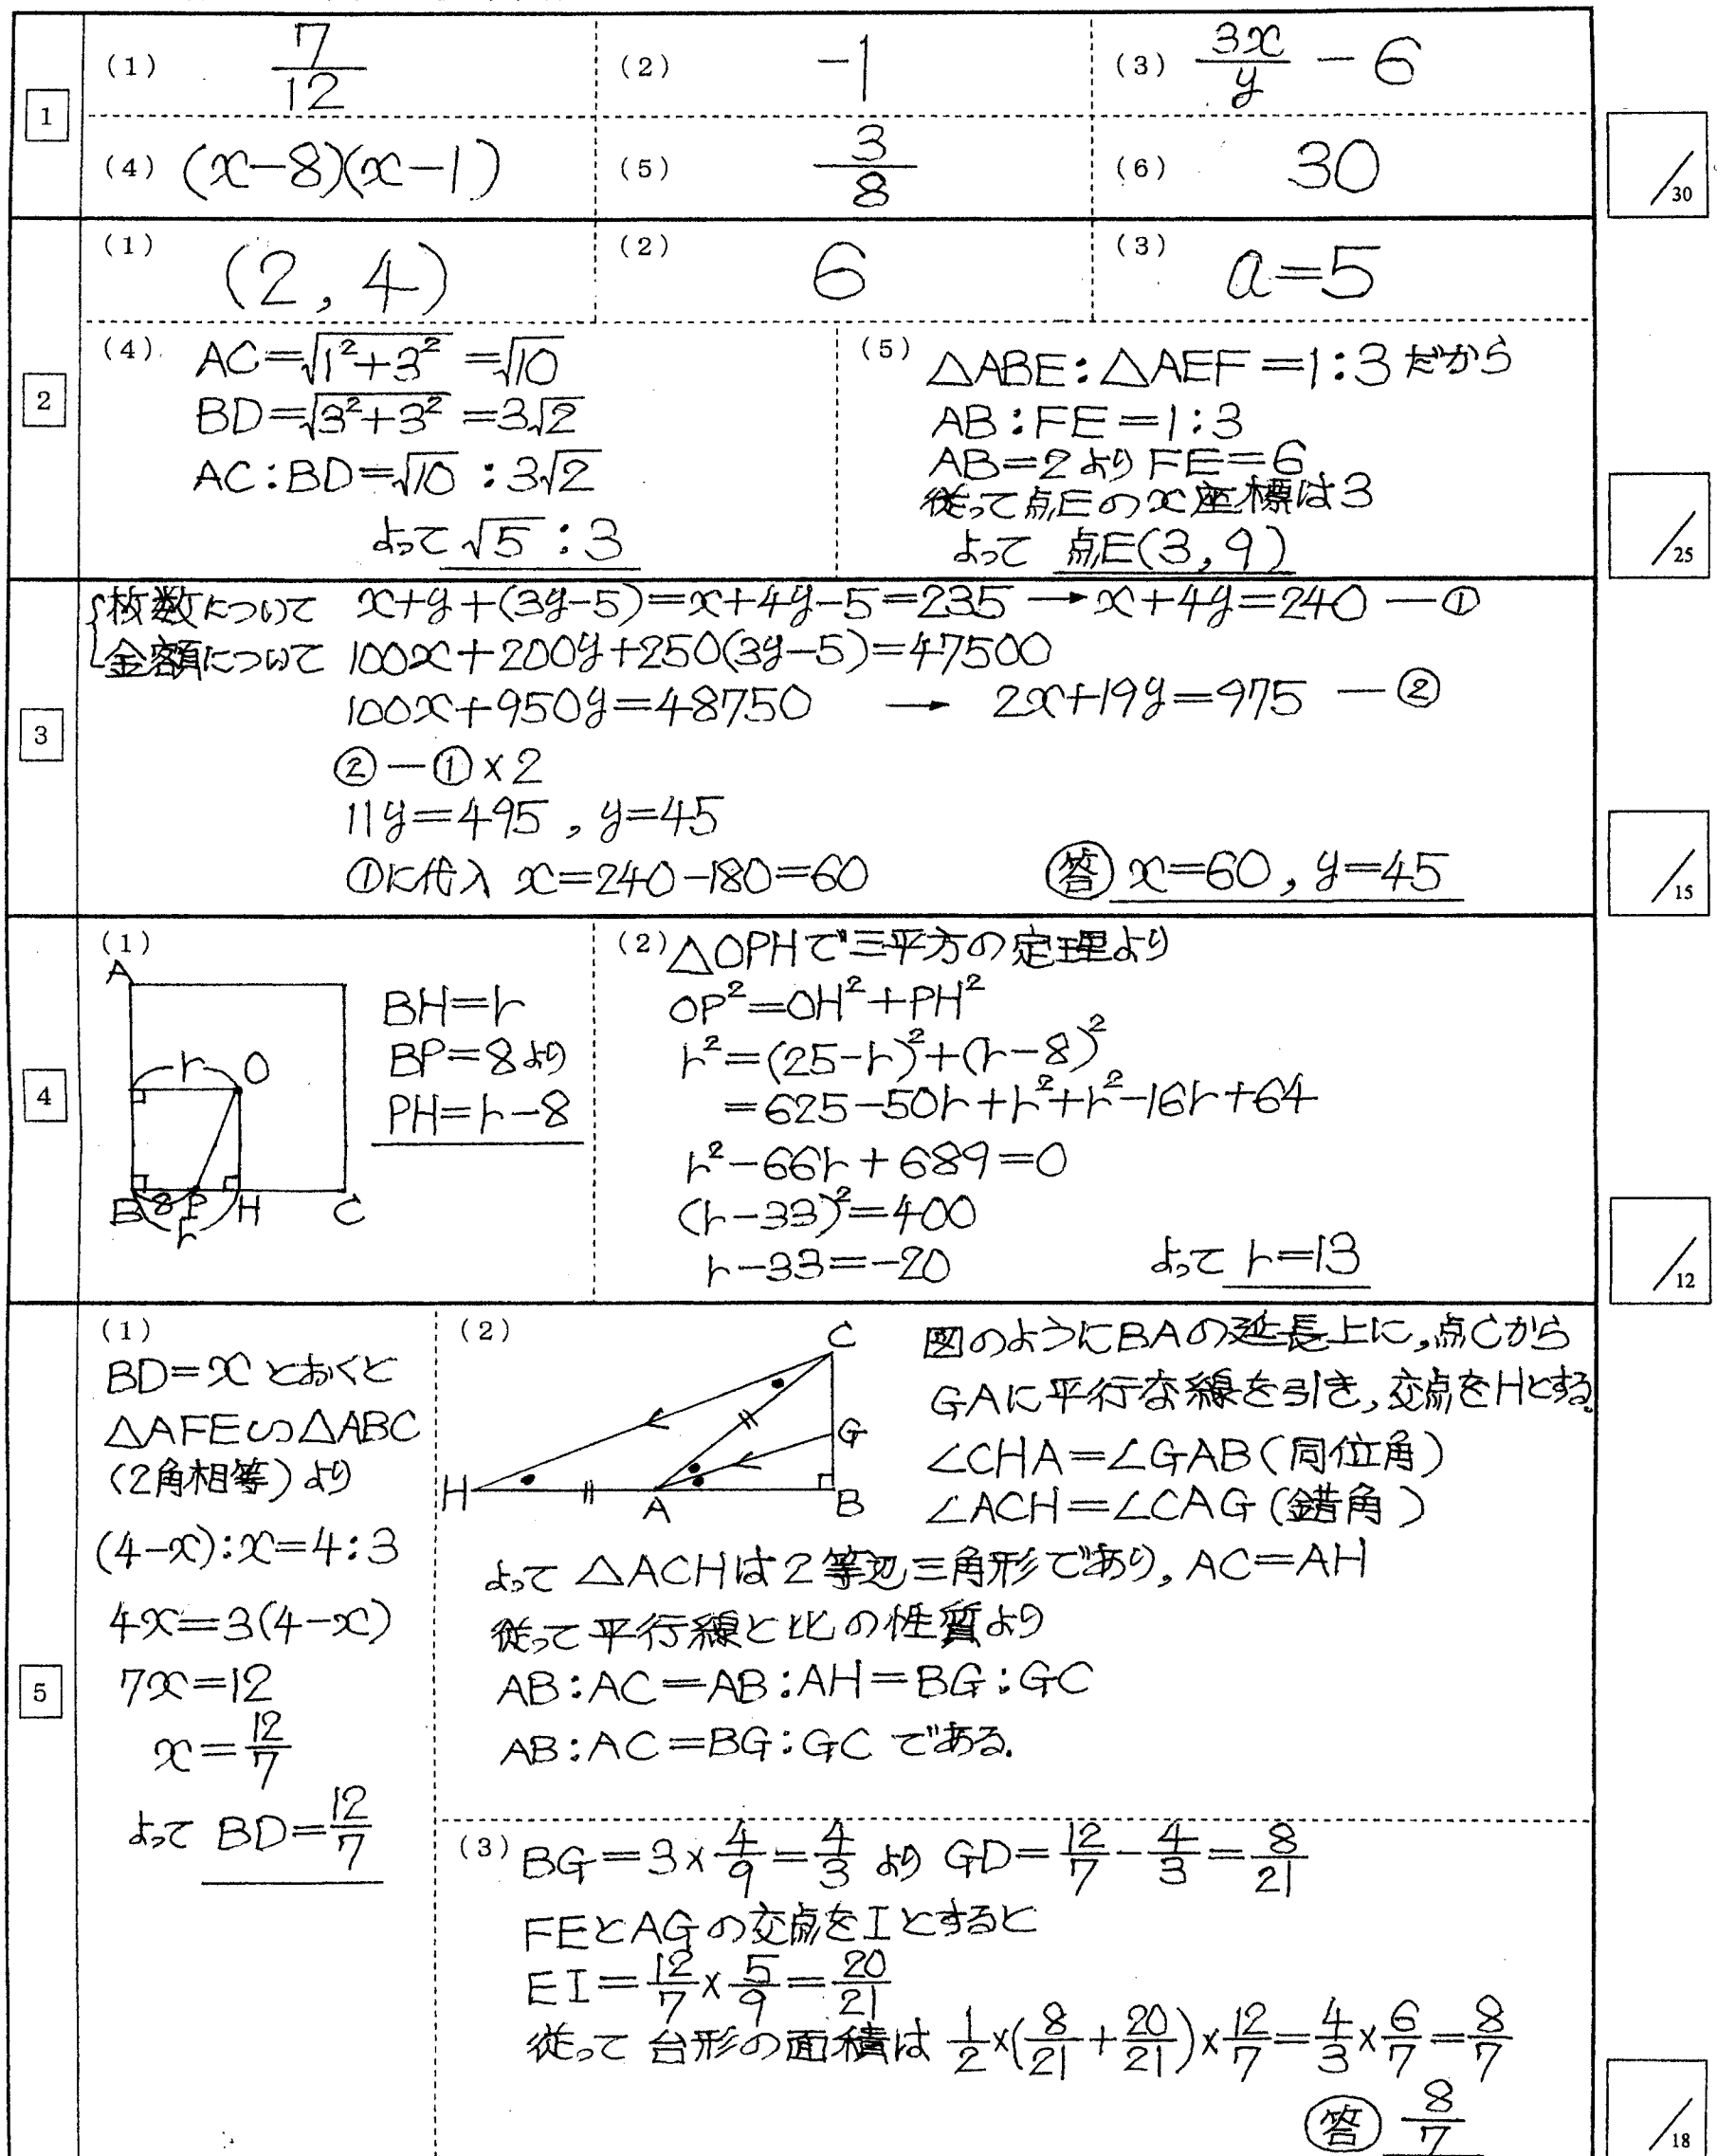 1
(1) 7/12 (2) -1 (3) 3x/y - 6
(4) (x-8)(x-1) (5) 3/8 (6) 30
/30
2
(1) (2, 4) (2) 6 (3) a=5
(4) AC=√(1²+3²) =√10
BD=√(3²+3²) =3√2
AC:BD=√10 : 3√2
よって √5 : 3
(5) △ABE:△AEF=1:3だから
AB:FE=1:3
AB=2より FE=6
従って点Eのx座標は3
よって 点E(3,9)
/25
3
{枚数について x+y+(3y-5)=x+4y-5=235 → x+4y=240 —①
金額について 100x+200y+250(3y-5)=47500
100x+950y=48750 → 2x+19y=975 —②
②-①×2
11y=495, y=45
①に代入 x=240-180=60 答 x=60, y=45
/15
4
(1)
A
r O
B 8 P H C
r
BH=r
BP=8より
PH=r-8
(2) △OPHで三平方の定理より
OP²=OH²+PH²
r²=(25-r)²+(r-8)²
=625-50r+r²+r²-16r+64
r²-66r+689=0
(r-33)²=400
r-33=-20 よって r=13
/12
5
(1)
BD=xとおくと
△AFE∽△ABC
(2角相等)より
(4-x):x=4:3
4x=3(4-x)
7x=12
x=12/7
よって BD=12/7
(2)
C
G
H A B
図のようにBAの延長上に,点Cから
GAに平行な線を引き,交点をHとする.
∠CHA=∠GAB(同位角)
∠ACH=∠CAG(錯角)
よって △ACHは2等辺三角形であり, AC=AH
従って平行線と比の性質より
AB:AC=AB:AH=BG:GC
AB:AC=BG:GC である.
(3) BG=3×4/9=4/3 より GD=12/7-4/3=8/21
FEとAGの交点をIとすると
EI=12/7×5/9=20/21
従って 台形の面積は 1/2×(8/21+20/21)×12/7=4/3×6/7=8/7
答 8/7
/18